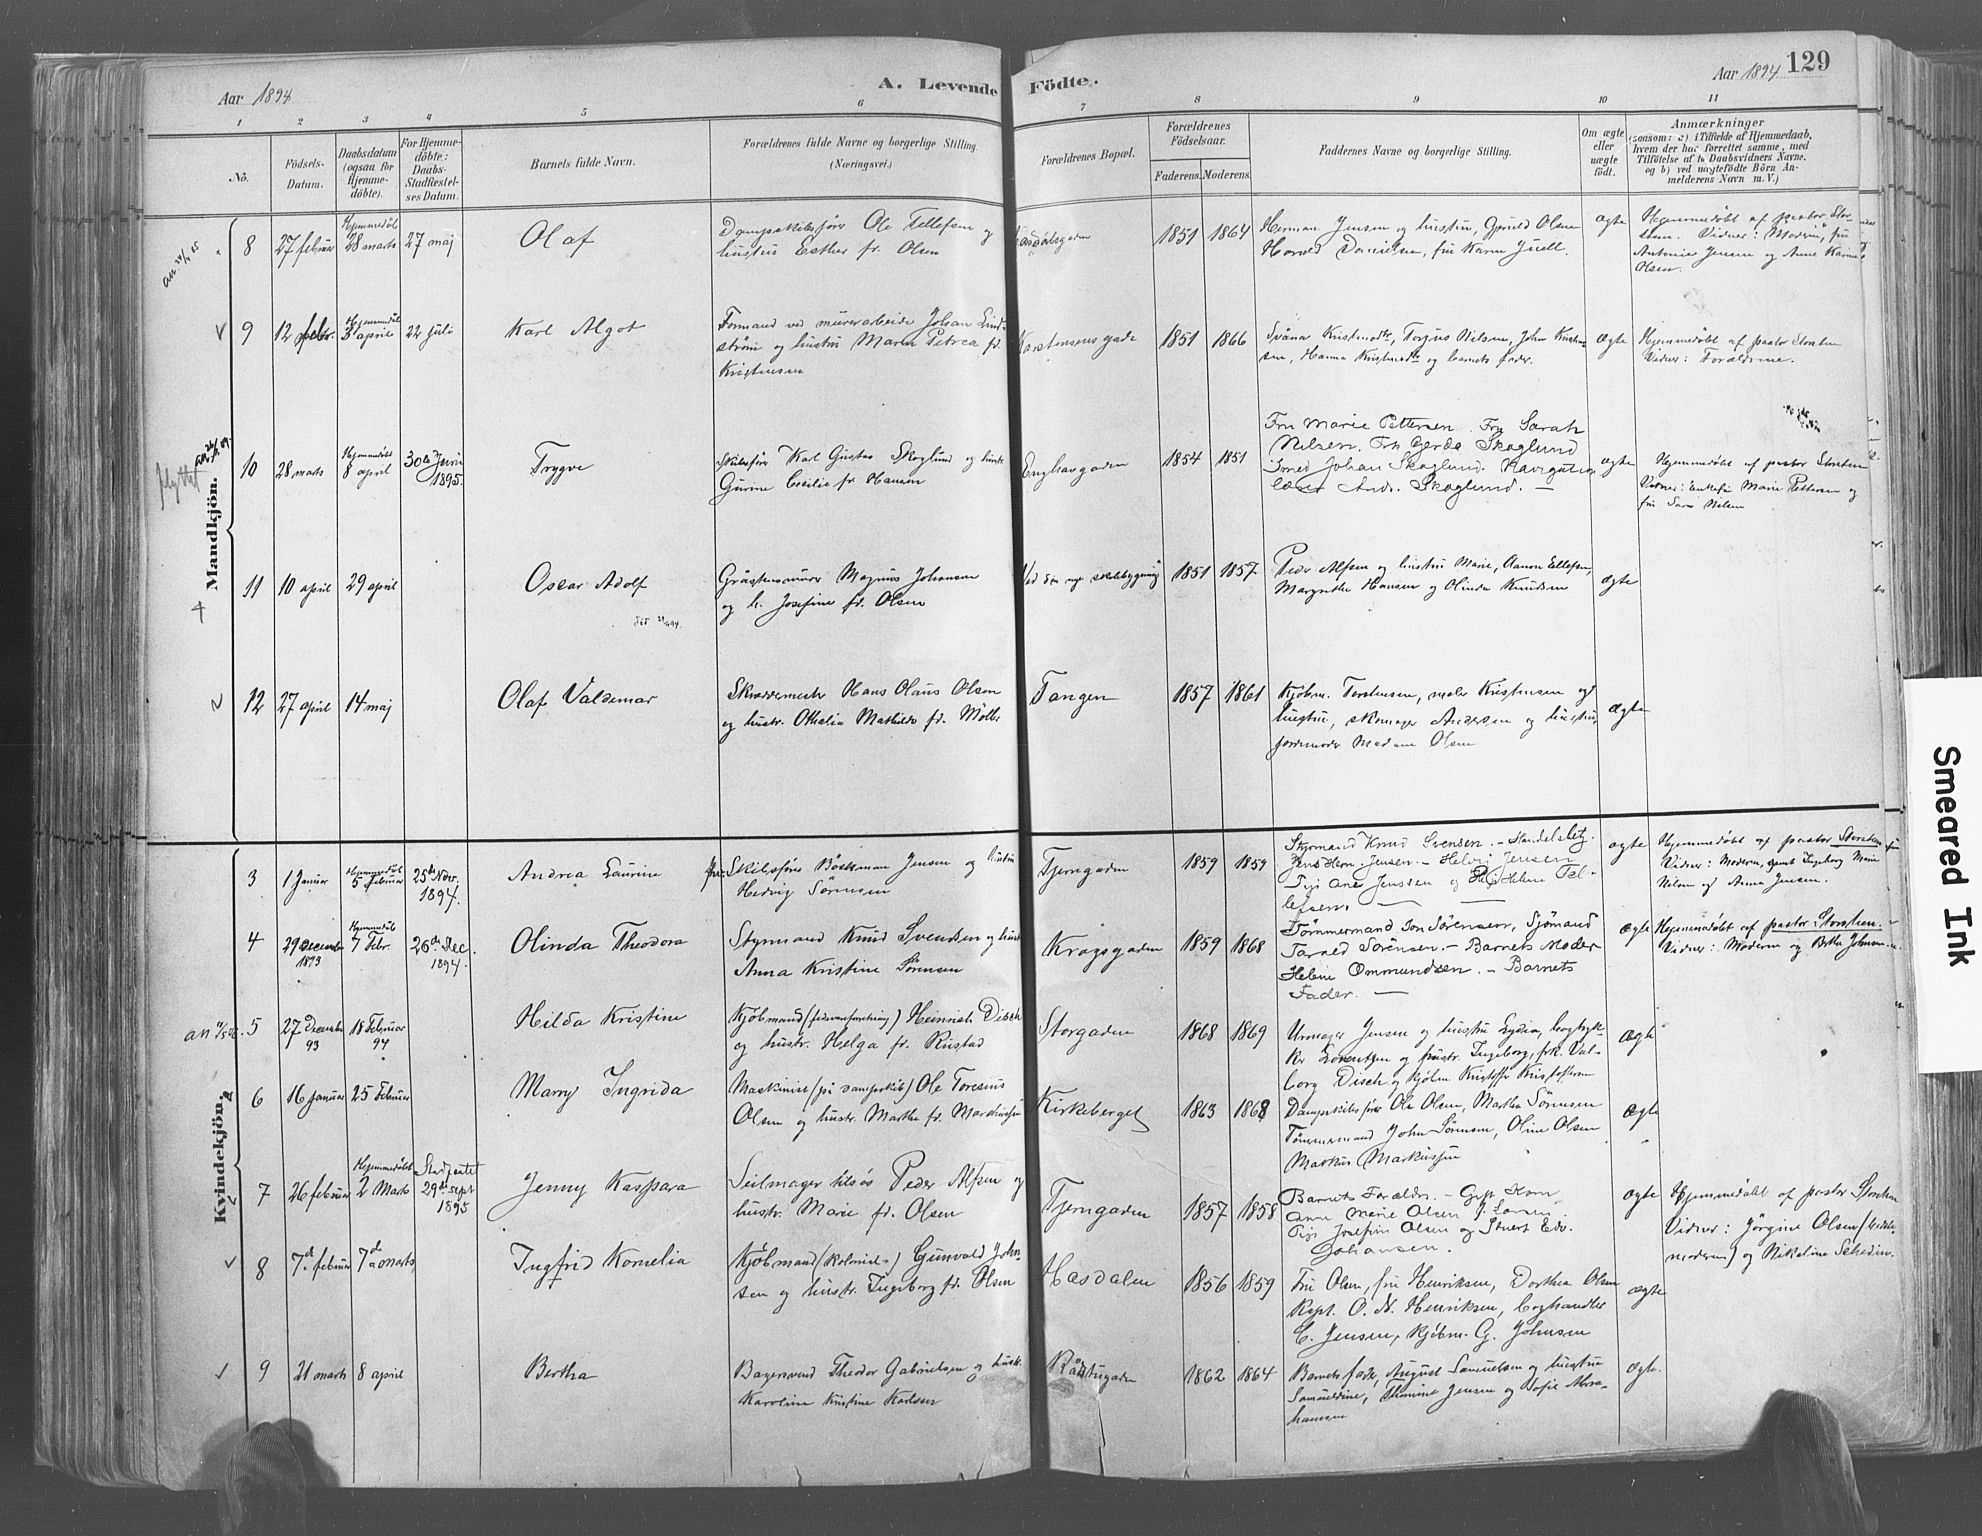 Aar 1894
A. Levende Födte.
Aar 1894 129
1 2 3 4 5 6 7 8 9 10 11
No.
Födsels-Datum.
Daabsdatum (ogsaa for Hjemmedöbte).
For Hjemmedöbte: Daabs-Stadfæstelses Datum.
Barnets fulde Navn.
Forældrenes fulde Navne og borgerlige Stilling. (Næringsvei.)
Forældrenes Bopæl.
Forældrenes Födselsaar.
Faderens. Moderens.
Faddernes Navne og borgerlige Stilling.
Om ægte eller uægte födt.
Anmærkninger
(saasom: a) i Tilfælde af Hjemmedaab, hvem der har forrettet samme, med Tilföielse af to Daabsvidners Navne, og b) ved uægtefödte Börn Anmelderens Navn m. V.)
Mandkjön.
8 27 februar Hjemmedöbt 28 marts 27 maj Olaf
Dampskibsförer Ole Tellefsen og
hustru Esther fr. Olsen
1851 1864
Herman Jensen og hustru, Olsen
Harald Danielsen, fru Karen Juell.
ægte
Hjemmedöbt af pastor Storsten. Vidner: Moderen, fru
Antonie Jensen og Anne Karine
Olsen.
9 12 febr. Hjemmedöbt 3 april 22 juli Karl Algot
Formand ved murerarbeide Johan Lindström og hustru Maren Petrea fr.
Kristensen
Karstensens gade 1851 1866
Torjus Nilsen, John Kristensen, Hanna og barnets fader.
ægte
Hjemmedöbt af pastor Storsten
Vidner: Forældrene.
Flyttet
10 28 marts Hjemmedöbt 8 april 30te Juni 1895. Trygve
Skibsförer Karl Gustav Skoglund og hustru
Gurine Cecilie fr. Hansen
Enghavgaden 1854 1851
Fru Marie Pettersen. Fru Sarah
Nilsen. Frk Gerda Skoglund
Smed Johan Skoglund.
Andr. Skoglund. —
ægte
Hjemmedöbt af pastor Storsten
Vidner: Enkefru Marie Pettersen og
fru Sara Nilsen
11 10 april 29 april Oscar Adolf
Magnus Johansen
og h. Josefine fr. Olsen
Ved den nye skibsbygning 1851 1857
Peder Alfsen og hustru Marie, Aanon Ellefsen,
Margrethe Hansen og Olinda Knudsen
ægte
12 27 april 14 maj Olaf Valdemar
Skræddermester Hans Olaus Olsen
og hustr. Othelia Mathilde fr. Möller
Tangen 1857 1861
Kjöbm. Torstensen, maler Kristensen og
hustru, skomager Andersen og hustru,
jordemoder Madam Olsen
ægte
Kvindekjön.
3 1 Januar Hjemmedöbt 5 Februar 25de Nov. 1894. Andrea Laurine
Skibsförer Böckman Jensen og hustru
Hedvig Sörensen
Tjerngaden 1859 1859
Styrmand Knud Svensen. — Handelsbetj.
Jens Herm. Jensen. — Helvig Jensen
Pige Ane Jensen og Pige Helene Tellefsen.
ægte
Hjemmedöbt af pastor Storsten
Vidner: Moderen, samt Ingeborg Marie
Nilsen og Anna Jensen.
4 29 December 1893 Hjemmedöbt 7 Febr. 26de Dec. 1894. Olinda Theodora
Styrmand Knud Svendsen og hustr.
Anna Kristine Sörensen
Kragsgaden 1859 1868
Tömmermand Jon Sörensen, Sjömand
Tarald Sörensen. — Barnets Moder
Helene Ommundsen. — Barnets
Fader. —
ægte
Hjemmedöbt af pastor Storsten.
Vidner: Moderen og Johnsen
5 27 December 93 18 Februar 94 Hilda Kristine
Kjöbmand Heinrich Disch
og hustr. Helga fr. Rustad
Storgaden 1868 1869
Urmager Jensen og hustru Lydia, bogtrykker Lorentzen og hustr. Ingeborg, frk. Valborg Disch og kjöbm. Kristoffer Kristoffersen
ægte
6 16 Januar 25 Februar Marry Ingrida
Maskinist (på dampskib) Ole Toresius
Olsen og hustr. Marthe fr. Markussen
Kirkeberget 1863 1868
Dampskibsförer Ole Olsen, Marthe Sörensen
Tömmermand John Sörensen, Oline Olsen
Markus Markussen
ægte
7 26 februar Hjemmedöbt 2 Marts Stadfæstet 29de sept 1895 Jenny Kaspara
Seilmager tilsös Peder Alfsen og
hustr. Marie fr. Olsen
Tjerngaden 1857 1858
Barnets Forældre. —
Anne Marie Olsen
Pige Josefine Olsen og Stuert Edv.
Johansen.
ægte
Hjemmedöbt af pastor Storsten
Vidner: Jörgine Olsen
og Nikoline Schedin.
8 7de februar 7de Marts Ingfrid Kornelia
Kjöbmand (kolonial-) Gunvald Johnsen og hustr. Ingeborg fr. Olsen
Hasdalen 1856 1859
Fru Olsen, fru Henriksen, Dorthea Olsen
Kapt. O. N. Henriksen, boghandler
C. Jensen, kjöbm. G. Johnsen
ægte
9 21 marts 8 april Bertha
Bagersvend Theodor Gabrielsen og hustr.
Karoline Kristine Karlsen
Rådstugaden 1862 1864
Barnets fader, August Samuelsen og hustru
Samueldine, Thomine Jensen og Sofie Abrahamsen
ægte.
Smeared Ink